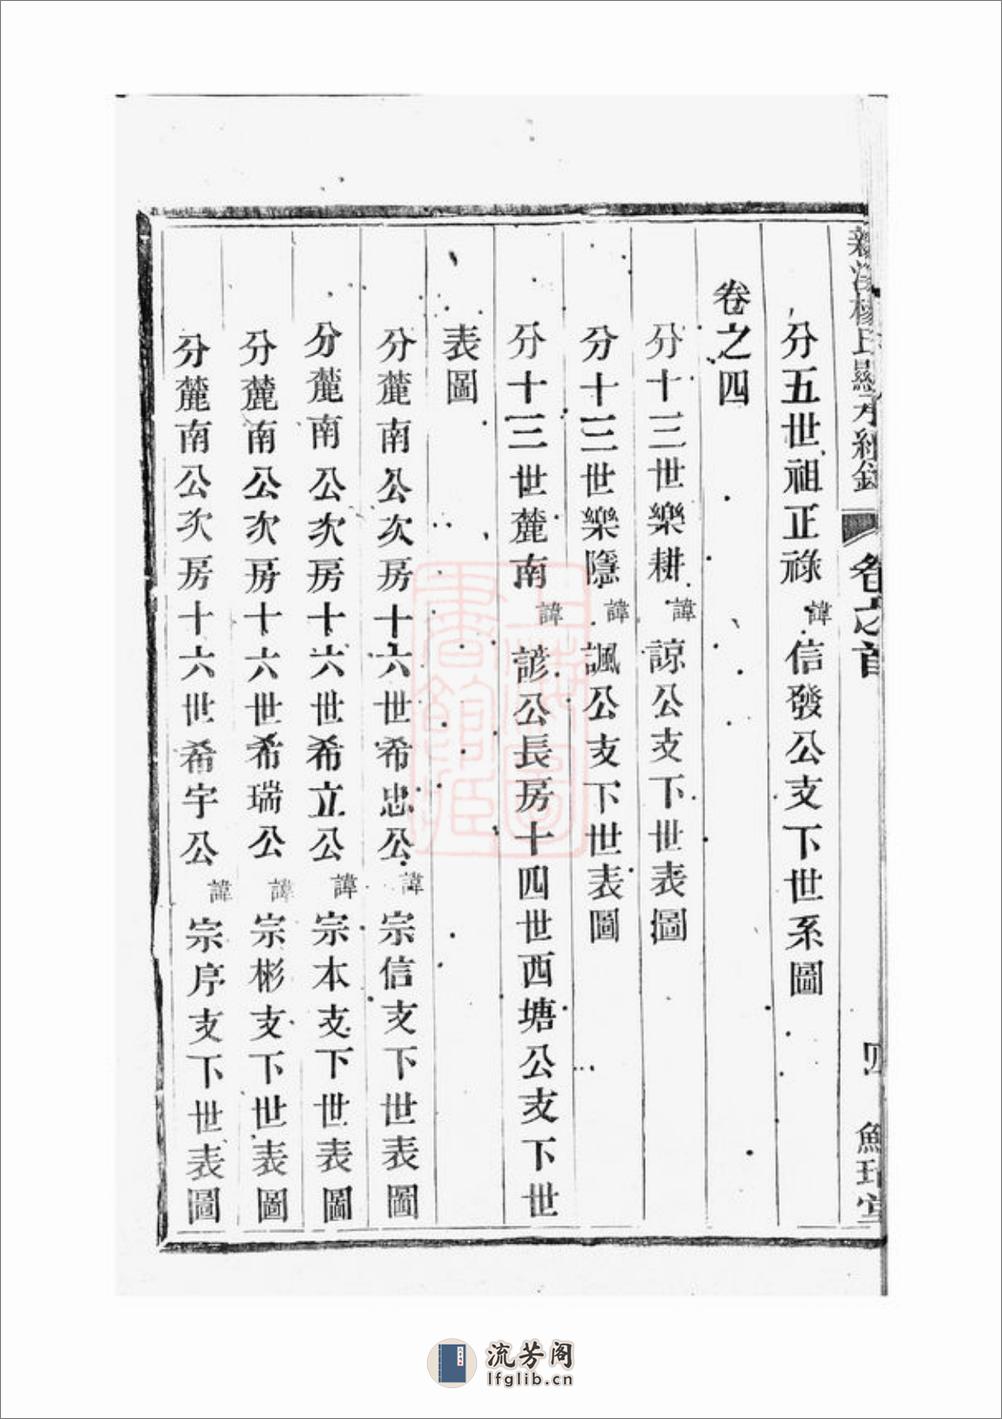 分五世祖正祿諱信發公支下世系圖
卷之四
分十三世樂耕諱諒公支下世表圖
分十三世樂隱諱諷公支下世表圖
分十三世麓南諱諺公長房十四世西塘公支下世
表圖
分麓南公次房十六世希忠公諱宗信支下世表圖
分麓南公次房十六世希立公諱宗本支下世表圖
分麓南公次房十六世希瑞公諱宗彬支下世表圖
分麓南公次房十六世希宇公諱宗序支下世表圖
卷之首
四
上海圖書館藏
流芳阁
lfglib.cn